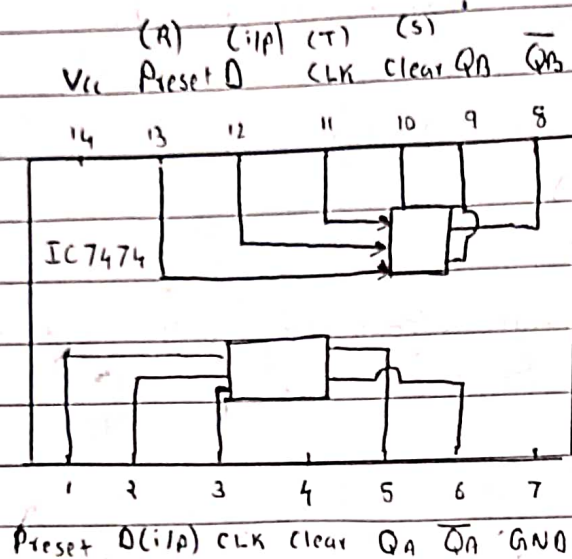 (R) (i/p) (T) (S)
Vcc Preset D CLK Clear QB Q̅B̅
14 13 12 11 10 9 8
IC7474
1 2 3 4 5 6 7
Preset D(i/p) CLK Clear QA Q̅A̅ GND